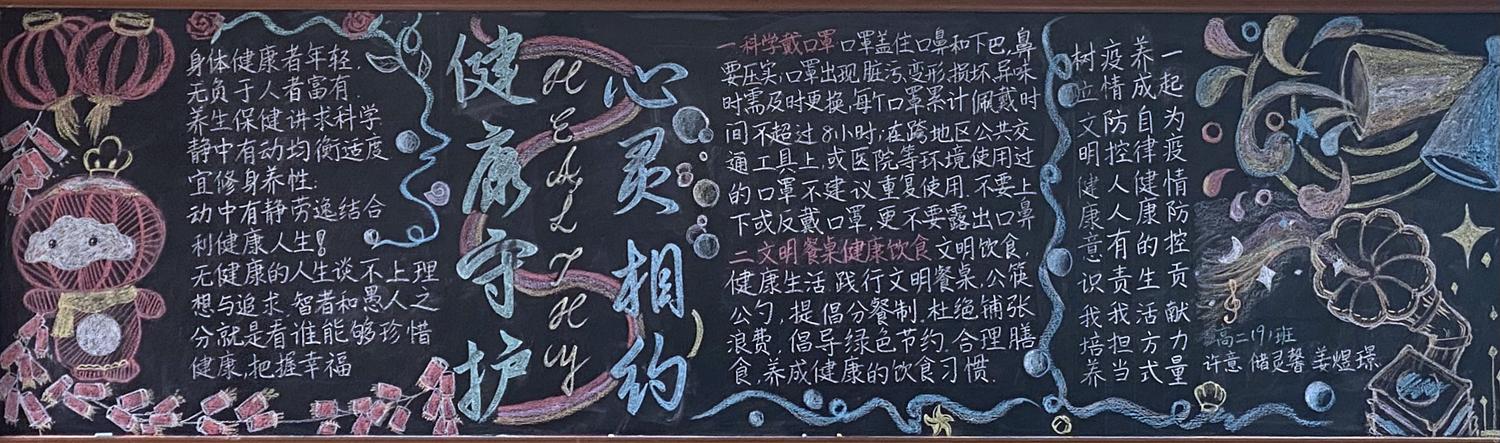 身体健康者年轻.
无负于人者富有.
养生保健讲求科学
静中有动均衡适度
宜修身养性;
动中有静劳逸结合
利健康人生!
无健康的人生谈不上理
想与追求.智者和愚人之
分就是看谁能够珍惜
健康,把握幸福
健康守护
HEALTHY
心灵相约
一.科学戴口罩 口罩盖住口鼻和下巴,鼻
要压实,口罩出现脏污,变形,损坏,异味
时需及时更换,每个口罩累计佩戴时
间不超过8小时;在跨地区公共交
通工具上,或医院等环境使用过
的口罩不建议重复使用.不要上
下或反戴口罩,更不要露出口鼻
二.文明餐桌健康饮食 文明饮食,
健康生活,践行文明餐桌,公筷
公勺,提倡分餐制.杜绝铺张
浪费.倡导绿色节约.合理膳
食,养成健康的饮食习惯.
一起为疫情防控贡献力量
养成自律健康的生活方式
疫情防控人人有责我担当
树立文明健康意识我培养
高二(9)班
许意 储灵馨 姜煜璟